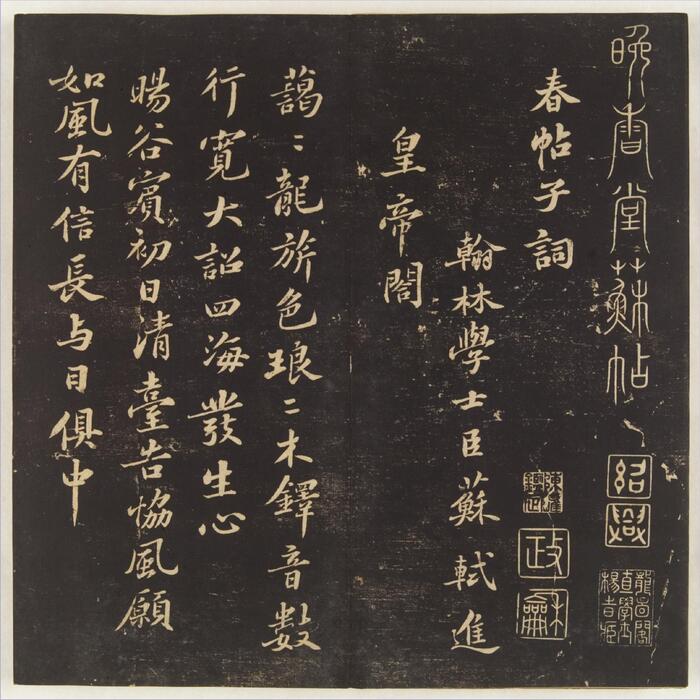 晚香堂蘇帖
春帖子詞
翰林學士臣蘇軾進
皇帝閣
藹〻龍旂色琅〻木鐸音數
行寛大詔四海發生心
暘谷賓初日清臺告協風願
如風有信長与日俱中
政龢